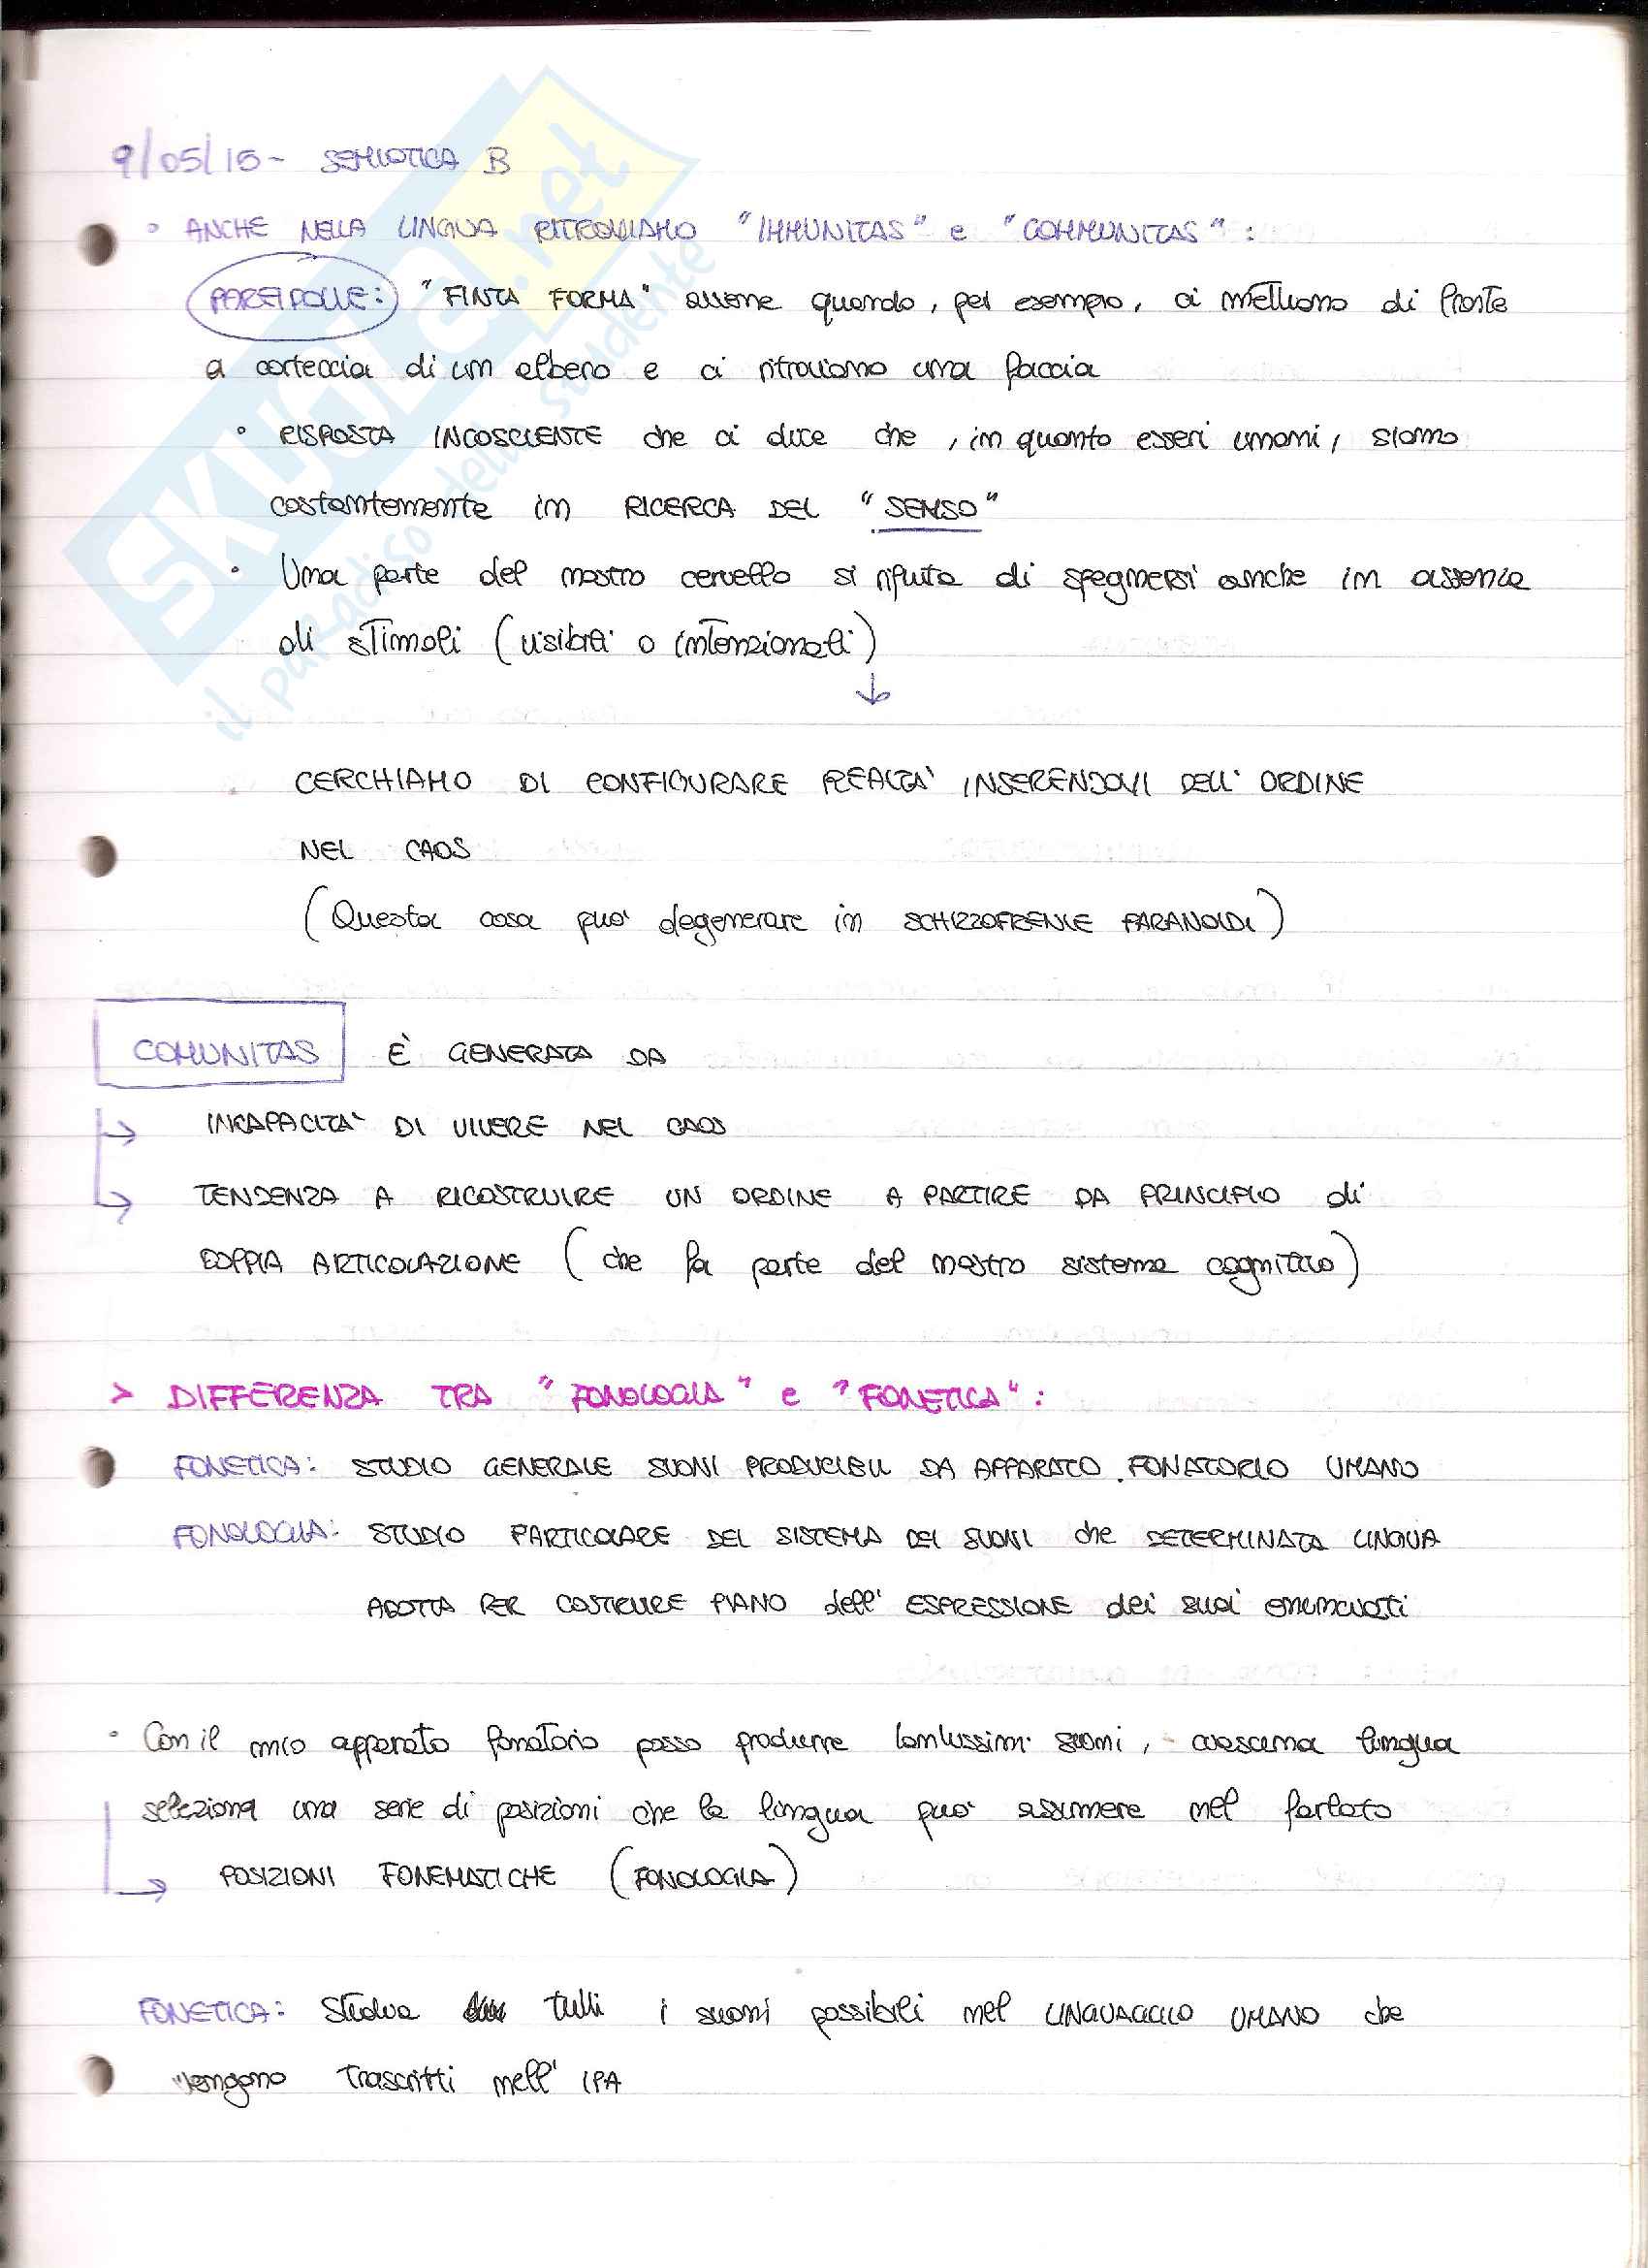 9/05/15 - SEMIOTICA B
• ANCHE NELLA LINGUA RITROVIAMO "IMMUNITAS" e "COMMUNITAS":
PAREIDOLIE: "FINTA FORMA" avviene quando, per esempio, ci mettiamo di fronte
a corteccia di un albero e ci ritroviamo una faccia
• RISPOSTA INCOSCIENTE che ci dice che, in quanto esseri umani, siamo
costantemente in RICERCA DEL "SENSO"
• Una parte del nostro cervello si rifiuta di spegnersi anche in assenza
di stimoli (visibili o intenzionali)
↓
CERCHIAMO DI CONFIGURARE REALTA' INSERENDOVI DELL'ORDINE
NEL CAOS
(Questa cosa può degenerare in SCHIZZOFRENIE PARANOIDI)
COMUNITAS È GENERATA DA
→ INCAPACITA' DI VIVERE NEL CAOS
→ TENDENZA A RICOSTRUIRE UN ORDINE A PARTIRE DA PRINCIPIO di
DOPPIA ARTICOLAZIONE (che fa parte del nostro sistema cognitivo)
> DIFFERENZA TRA "FONOLOGIA" e "FONETICA":
FONETICA: STUDIO GENERALE SUONI PRODUCIBILI DA APPARATO FONATORIO UMANO
FONOLOGIA: STUDIO PARTICOLARE DEL SISTEMA DEI SUONI che DETERMINATA LINGUA
ADOTTA PER COSTRUIRE PIANO dell'ESPRESSIONE dei suoi enunciati
• Con il mio apparato fonatorio posso produrre tantissimi suoni, ciascuna lingua
seleziona una serie di posizioni che la lingua può assumere nel parlato
→ POSIZIONI FONEMATICHE (FONOLOGIA)
FONETICA: Studia tutti i suoni possibili nel LINGUAGGIO UMANO che
vengono trascritti nell'IPA
SKUOLA.net
il paradiso dello studente